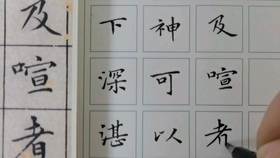 及喧者
下深湛
神可以
及喧者